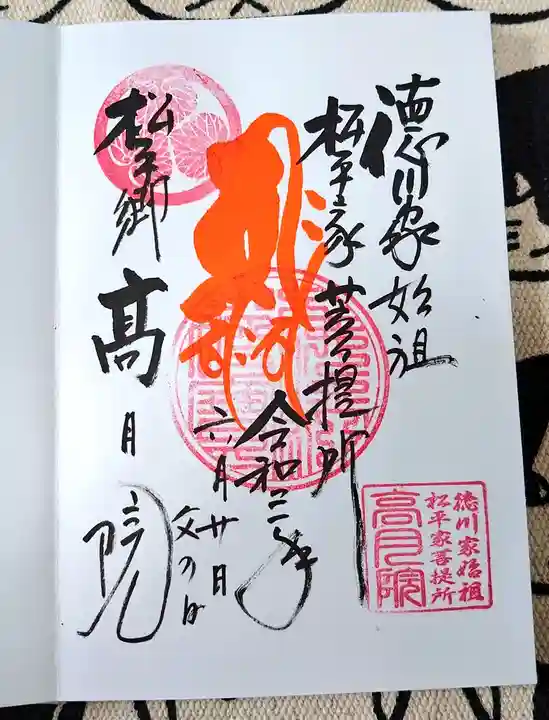 徳川家始祖
松平家菩提所
令和三年
六月廿日
父の日
松平郷
高月院
徳川家始祖
松平家菩提所
高月院